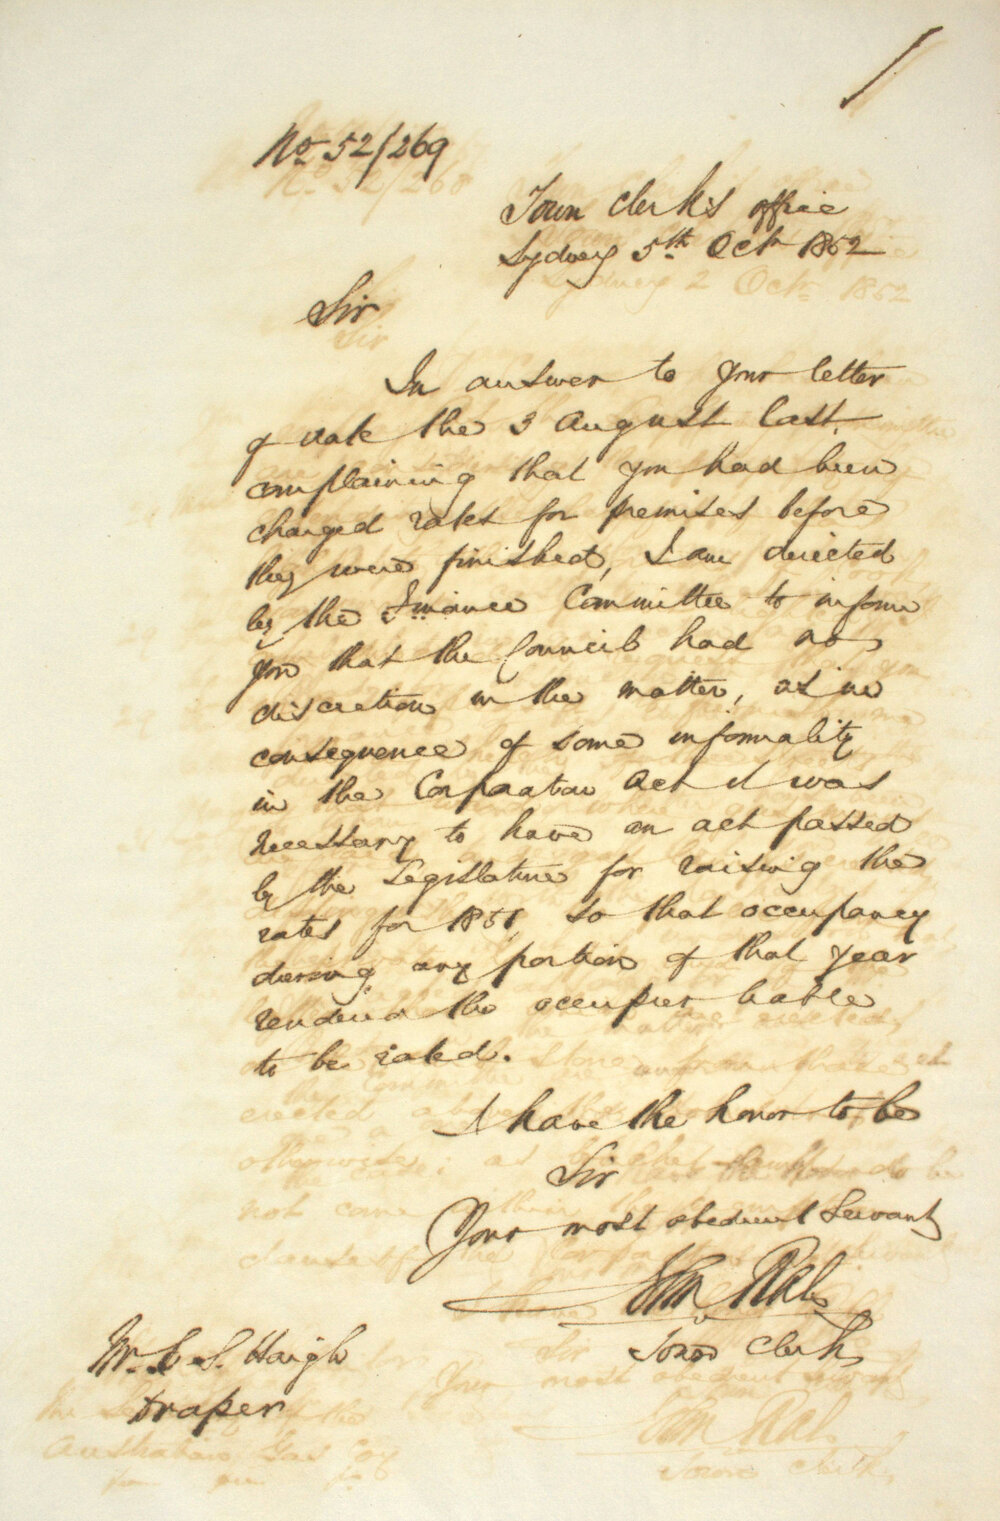 No. 52/269
Town Clerk's office
Sydney 5th Octr 1852
Sir
In answer to your letter
of date the 3 August last,
complaining that you had been
charged rates for premises before
they were finished, I am directed
by the Finance Committee to inform
you that the Council had no
discretion in the matter, as in
consequence of some informality
in the Corporation Act it was
necessary to have an act passed
by the Legislature for raising the
rates for 1851, so that occupancy
during any portion of that year
rendered the occupier liable
to be rated.
I have the honor to be
Sir
Your most obedient Servant
Town Clerk
Mr. S. Haigh
Draper